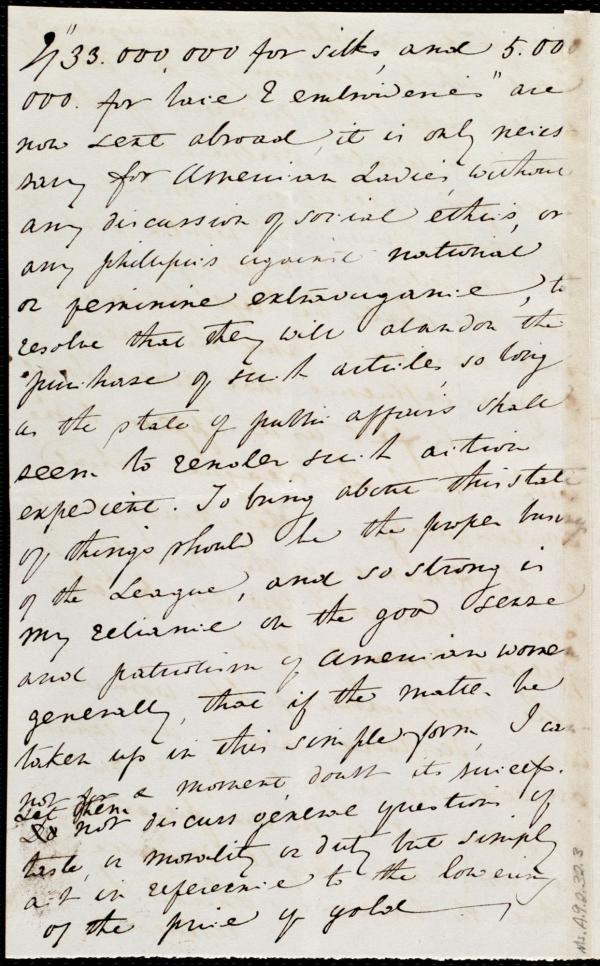 If "33.000,000 for silks, and 5.000
000. for lace & embroideries" are
now sent abroad, it is only neces
sary for American Ladies, without
any discussion of social ethics, or
any phillipics against national
or feminine extravagance, to
resolve that they will abandon the
purchase of such articles, so long
as the state of public affairs shall
seem to render such action
expedient. To bring about this state
of things should be the proper busi
of the League, and so strong is
my reliance on the good sense
and patriotism of American women
generally, that if the matter be
taken up in this simple form, I can
not for a moment doubt its success.
Let them
Do not discuss general questions of
taste, or morality or duty but simply
act in reference to the lowering
of the price of gold
Ms. A.9.2.32.3